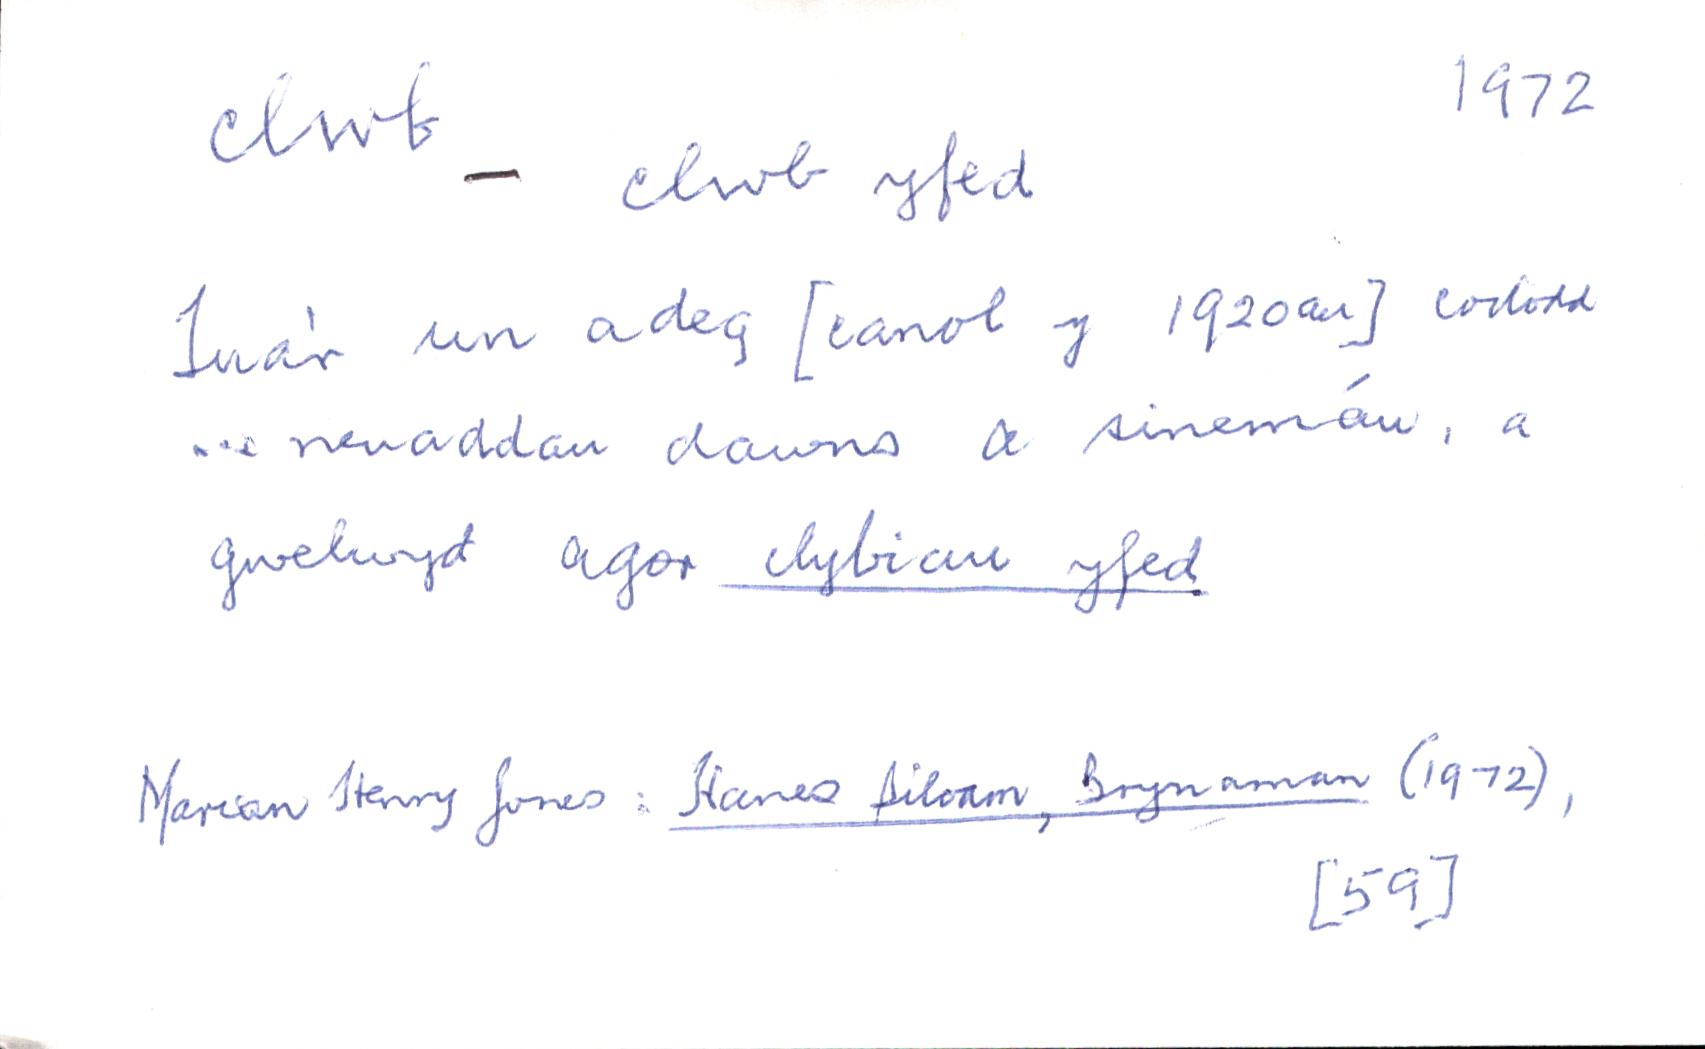 clwb 1972
– clwb yfed
Tua'r un adeg [canol y 1920au] cododd
... neuaddau dawns a sinemáu, a
gwelwyd agor clybiau yfed
Marian Henry Jones: Hanes Siloam, Brynaman (1972),
[59]